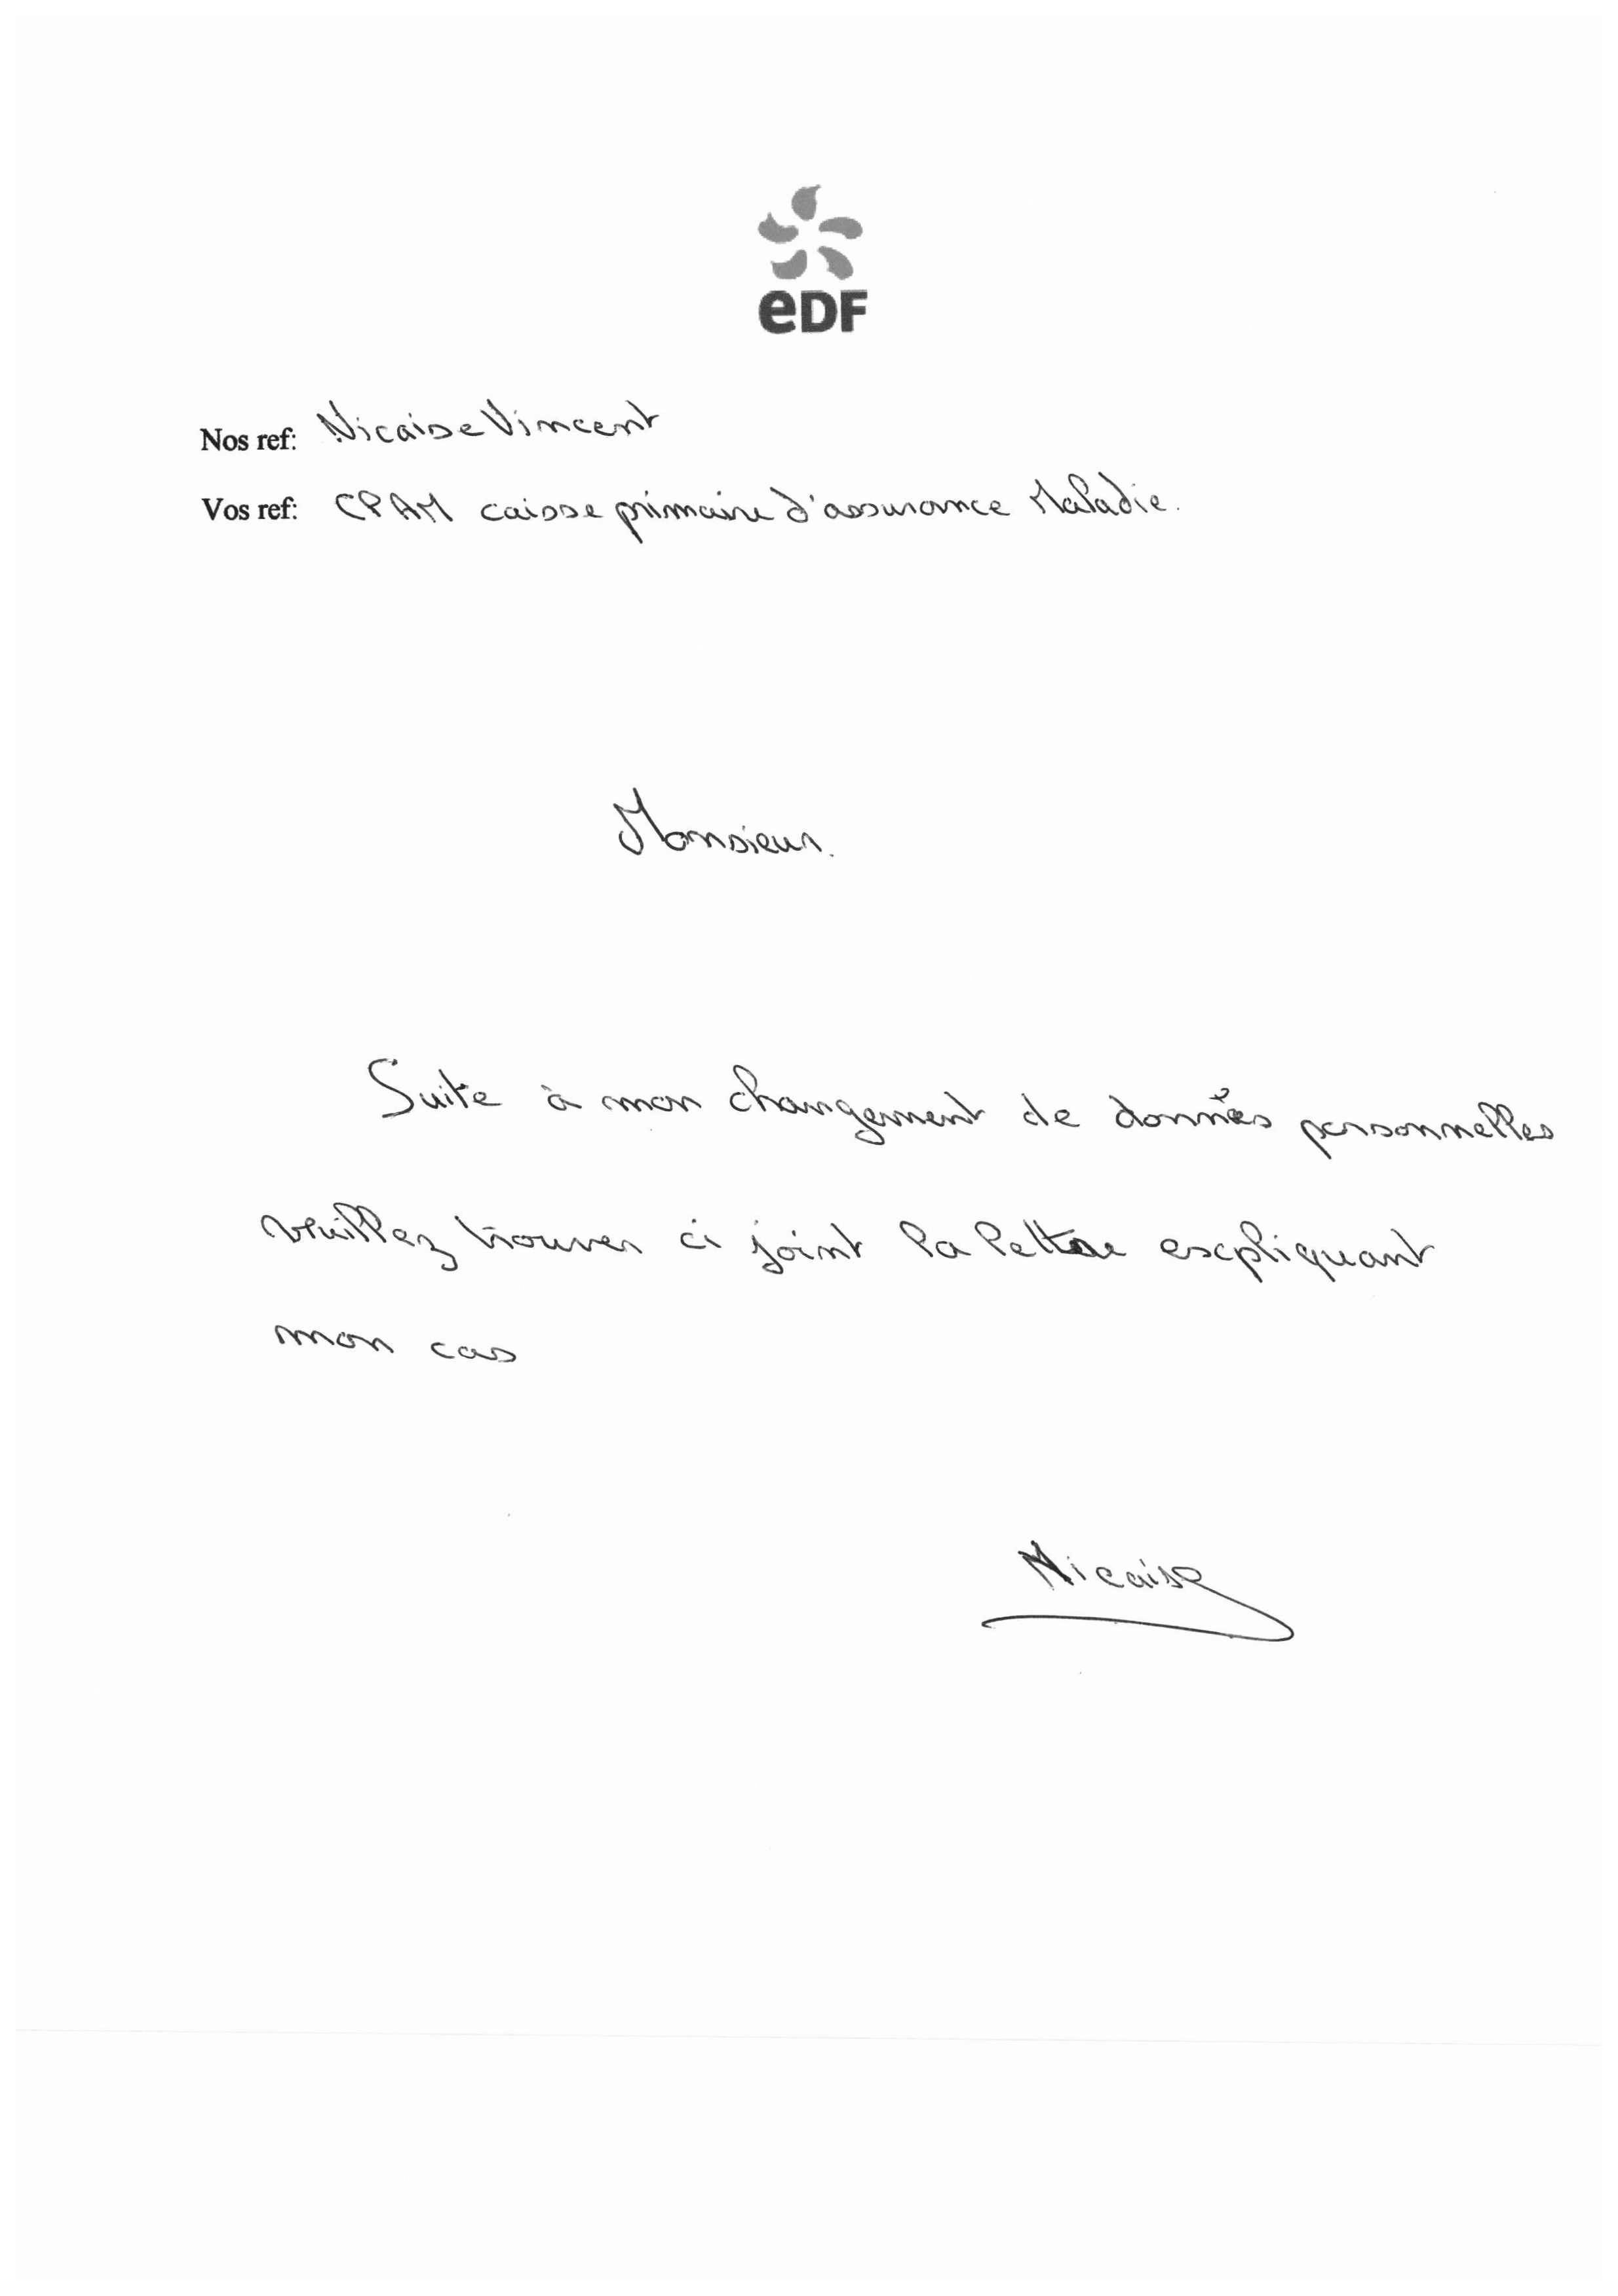 eDF
Nos ref: Nicaise Vincent
Vos ref: CPAM caisse primaire d'assurance Maladie.
Monsieur.
Suite à mon changement de données personnelles
veuillez trouver ci joint la lettre expliquant
mon cas
Nicaise